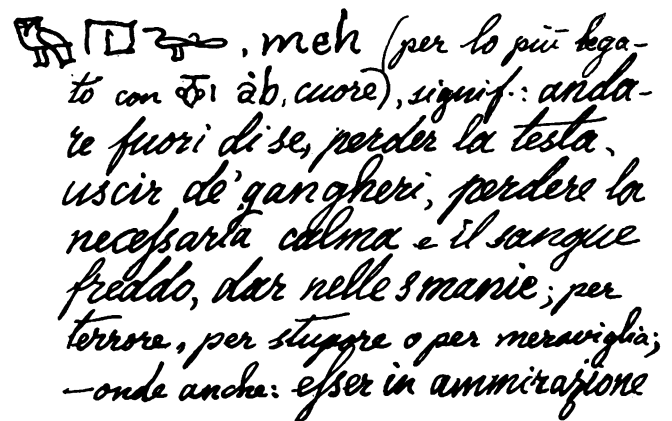 𓅓𓉔𓂺, meh (per lo più lega-
to con 𓄣𓏤 àb, cuore), signif.: anda-
re fuori di se, perder la testa,
uscir de' gangheri, perdere la
necessaria calma e il sangue
freddo, dar nelle smanie; per
terrore, per stupore o per meraviglia;
—onde anche: esser in ammirazione